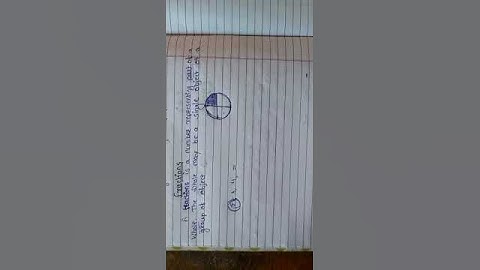 Fractions
A fractions is a number representing part of a
whole. The whole may be a single object or a
group of object